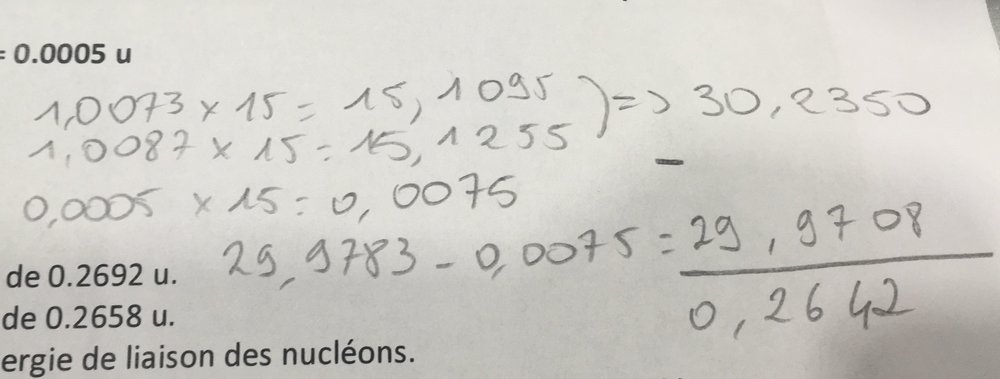 = 0.0005 u
1,0073 x 15 = 15,1095 ) => 30,2350
1,0087 x 15 = 15,1255
0,0005 x 15 = 0,0075
29,9783 - 0,0075 = 29,9708
de 0.2692 u.
0,2642
de 0.2658 u.
ergie de liaison des nucléons.